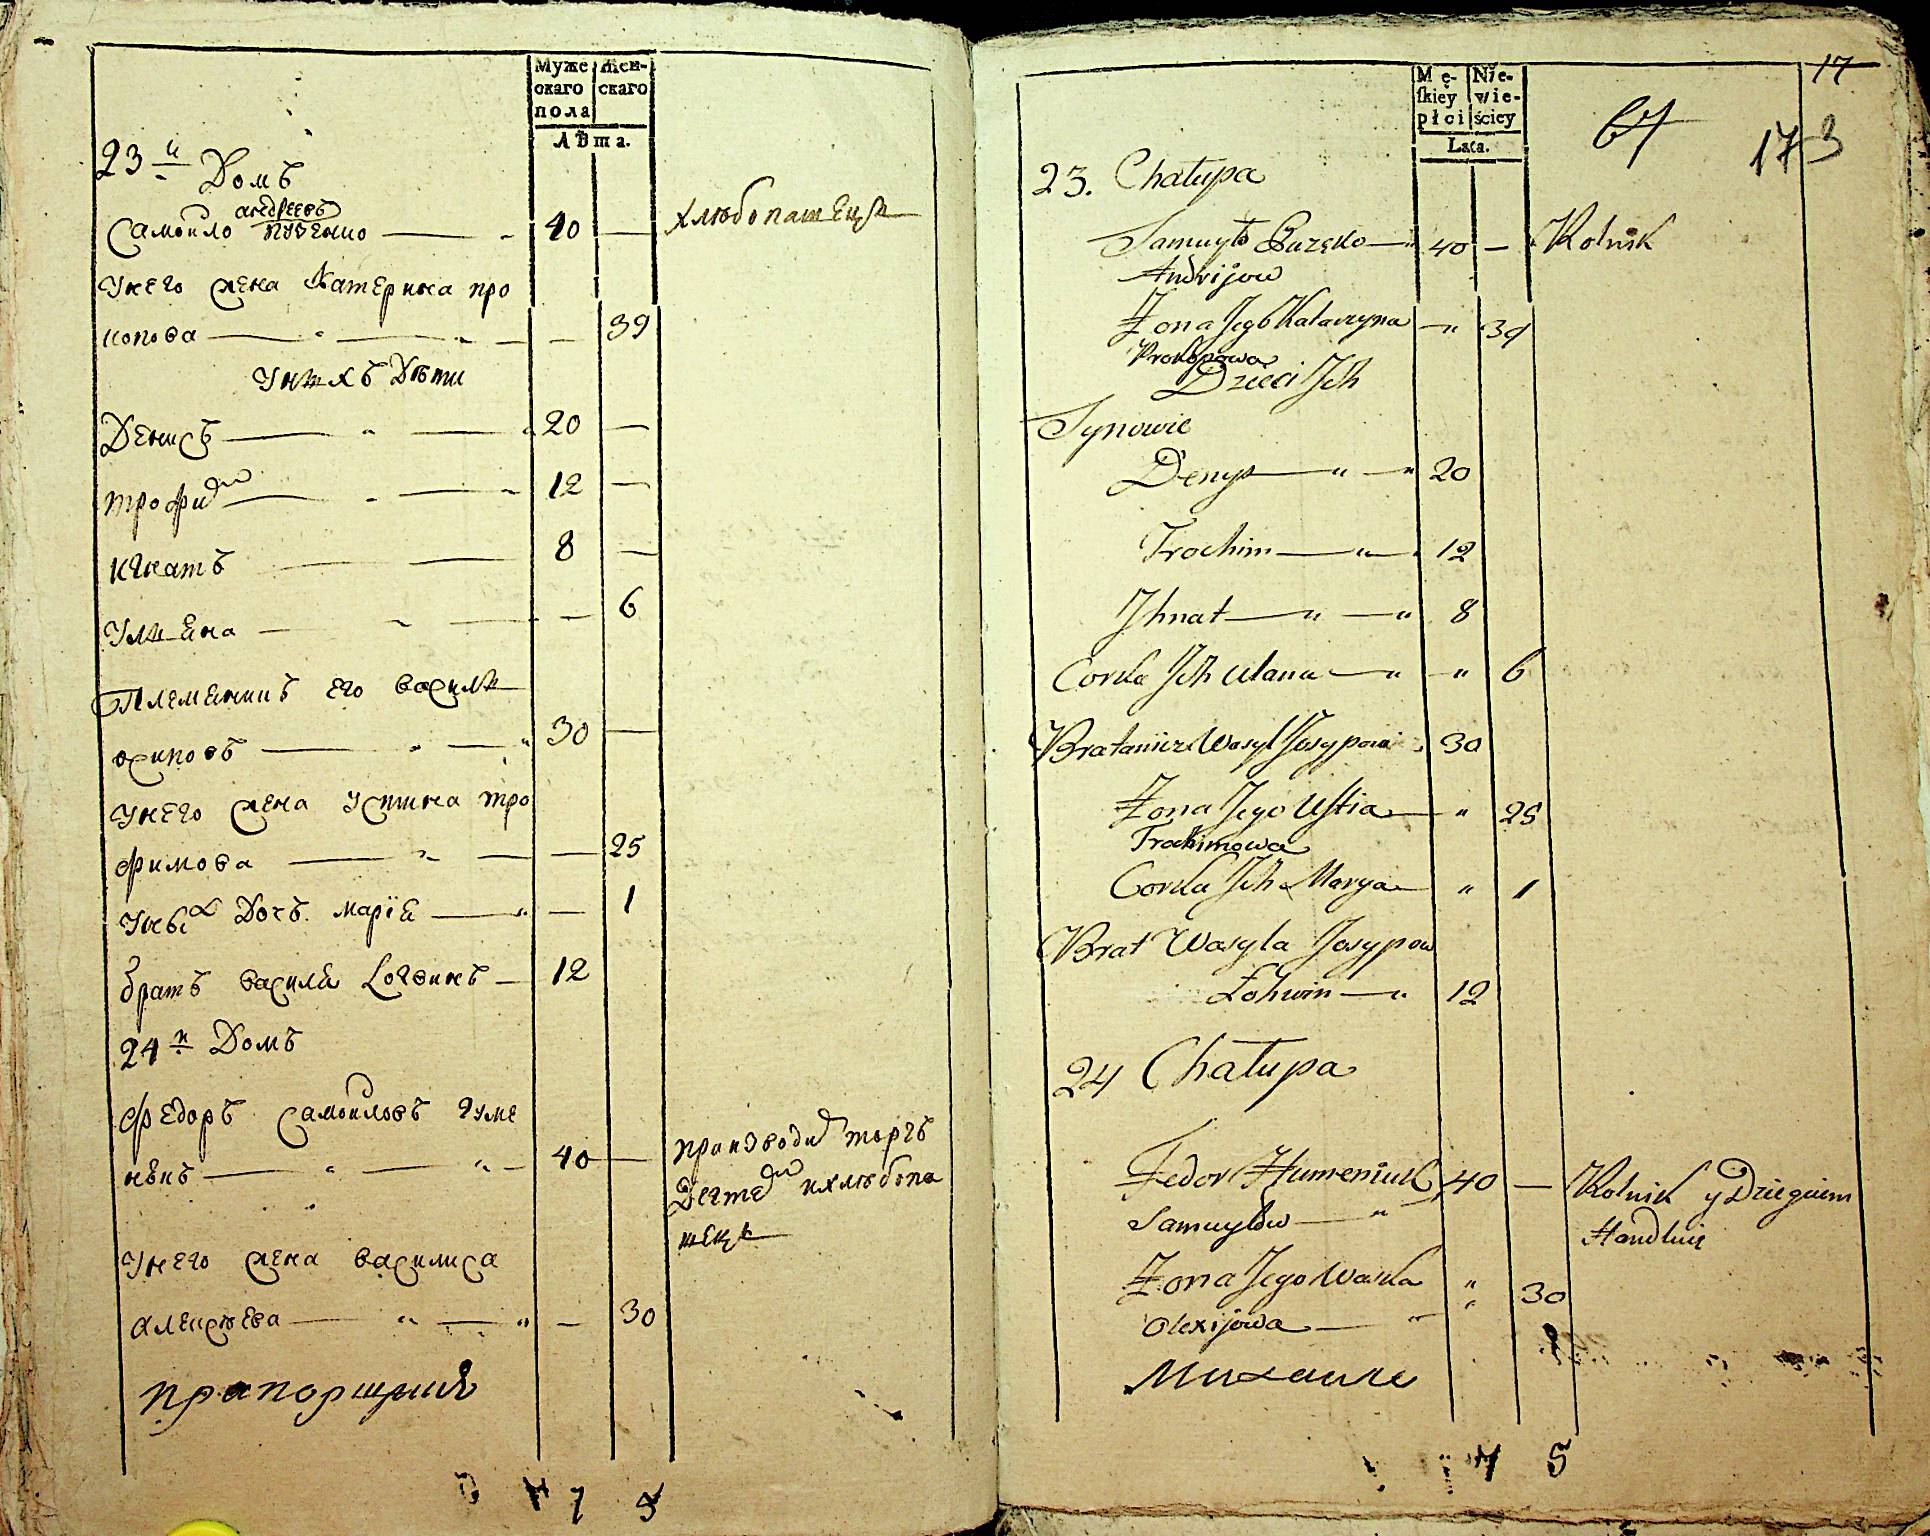 Муже Жен-
скаго скаго
пола
Лѣта.
23й Домъ
андреевъ
Самойло пузенко — 40 — хлѣбопашецъ
У него жена Катерина про
копова — — 39
У нихъ Дѣти
Денисъ — 20 —
трофим — 12 —
игнатъ — 8 —
Улияна — — 6
Племяникъ его василий
осиповъ — 30 —
У него жена Устина тро
фимова — — 25
У ных Дочъ мария — — 1
братъ василя Логвинъ — 12
24й Домъ
федоръ самойловъ гуме
нюкъ — 40 — производит торгъ
Дегтем и хлѣбопа
шецъ
У него жена василиса
алексѣева — — 30
прапорщикъ
7 5
Mę- Nie-
ſkiey wie-
płci ściey
Lata.
17
67
173
23. Chałupa
Samuyło Puzenko — 40 — Rolnik
Andrijow
Żona Jego Katarzyna — " 39
Prokopowa
Dzieci Jch
Synowie
Denys — " — " 20
Trochim — " — 12
Jhnat — " — " 8
Corka Jch Ulana — " — " 6
Bratanicz Wasyl Josypow 30
Żona Jego Uſtia — " 25
Trochimowa
Corka Jch Marya — " 1
Brat Wasyla Josypow
Łohwin — " 12
24 Chałupa
Fedor Humeniuk 40 — Rolnik y Dziegciem
Samuyłow — " Handluie
Żona Jego Waska " 30
Olexijowa — " "
Михаиле
7 5